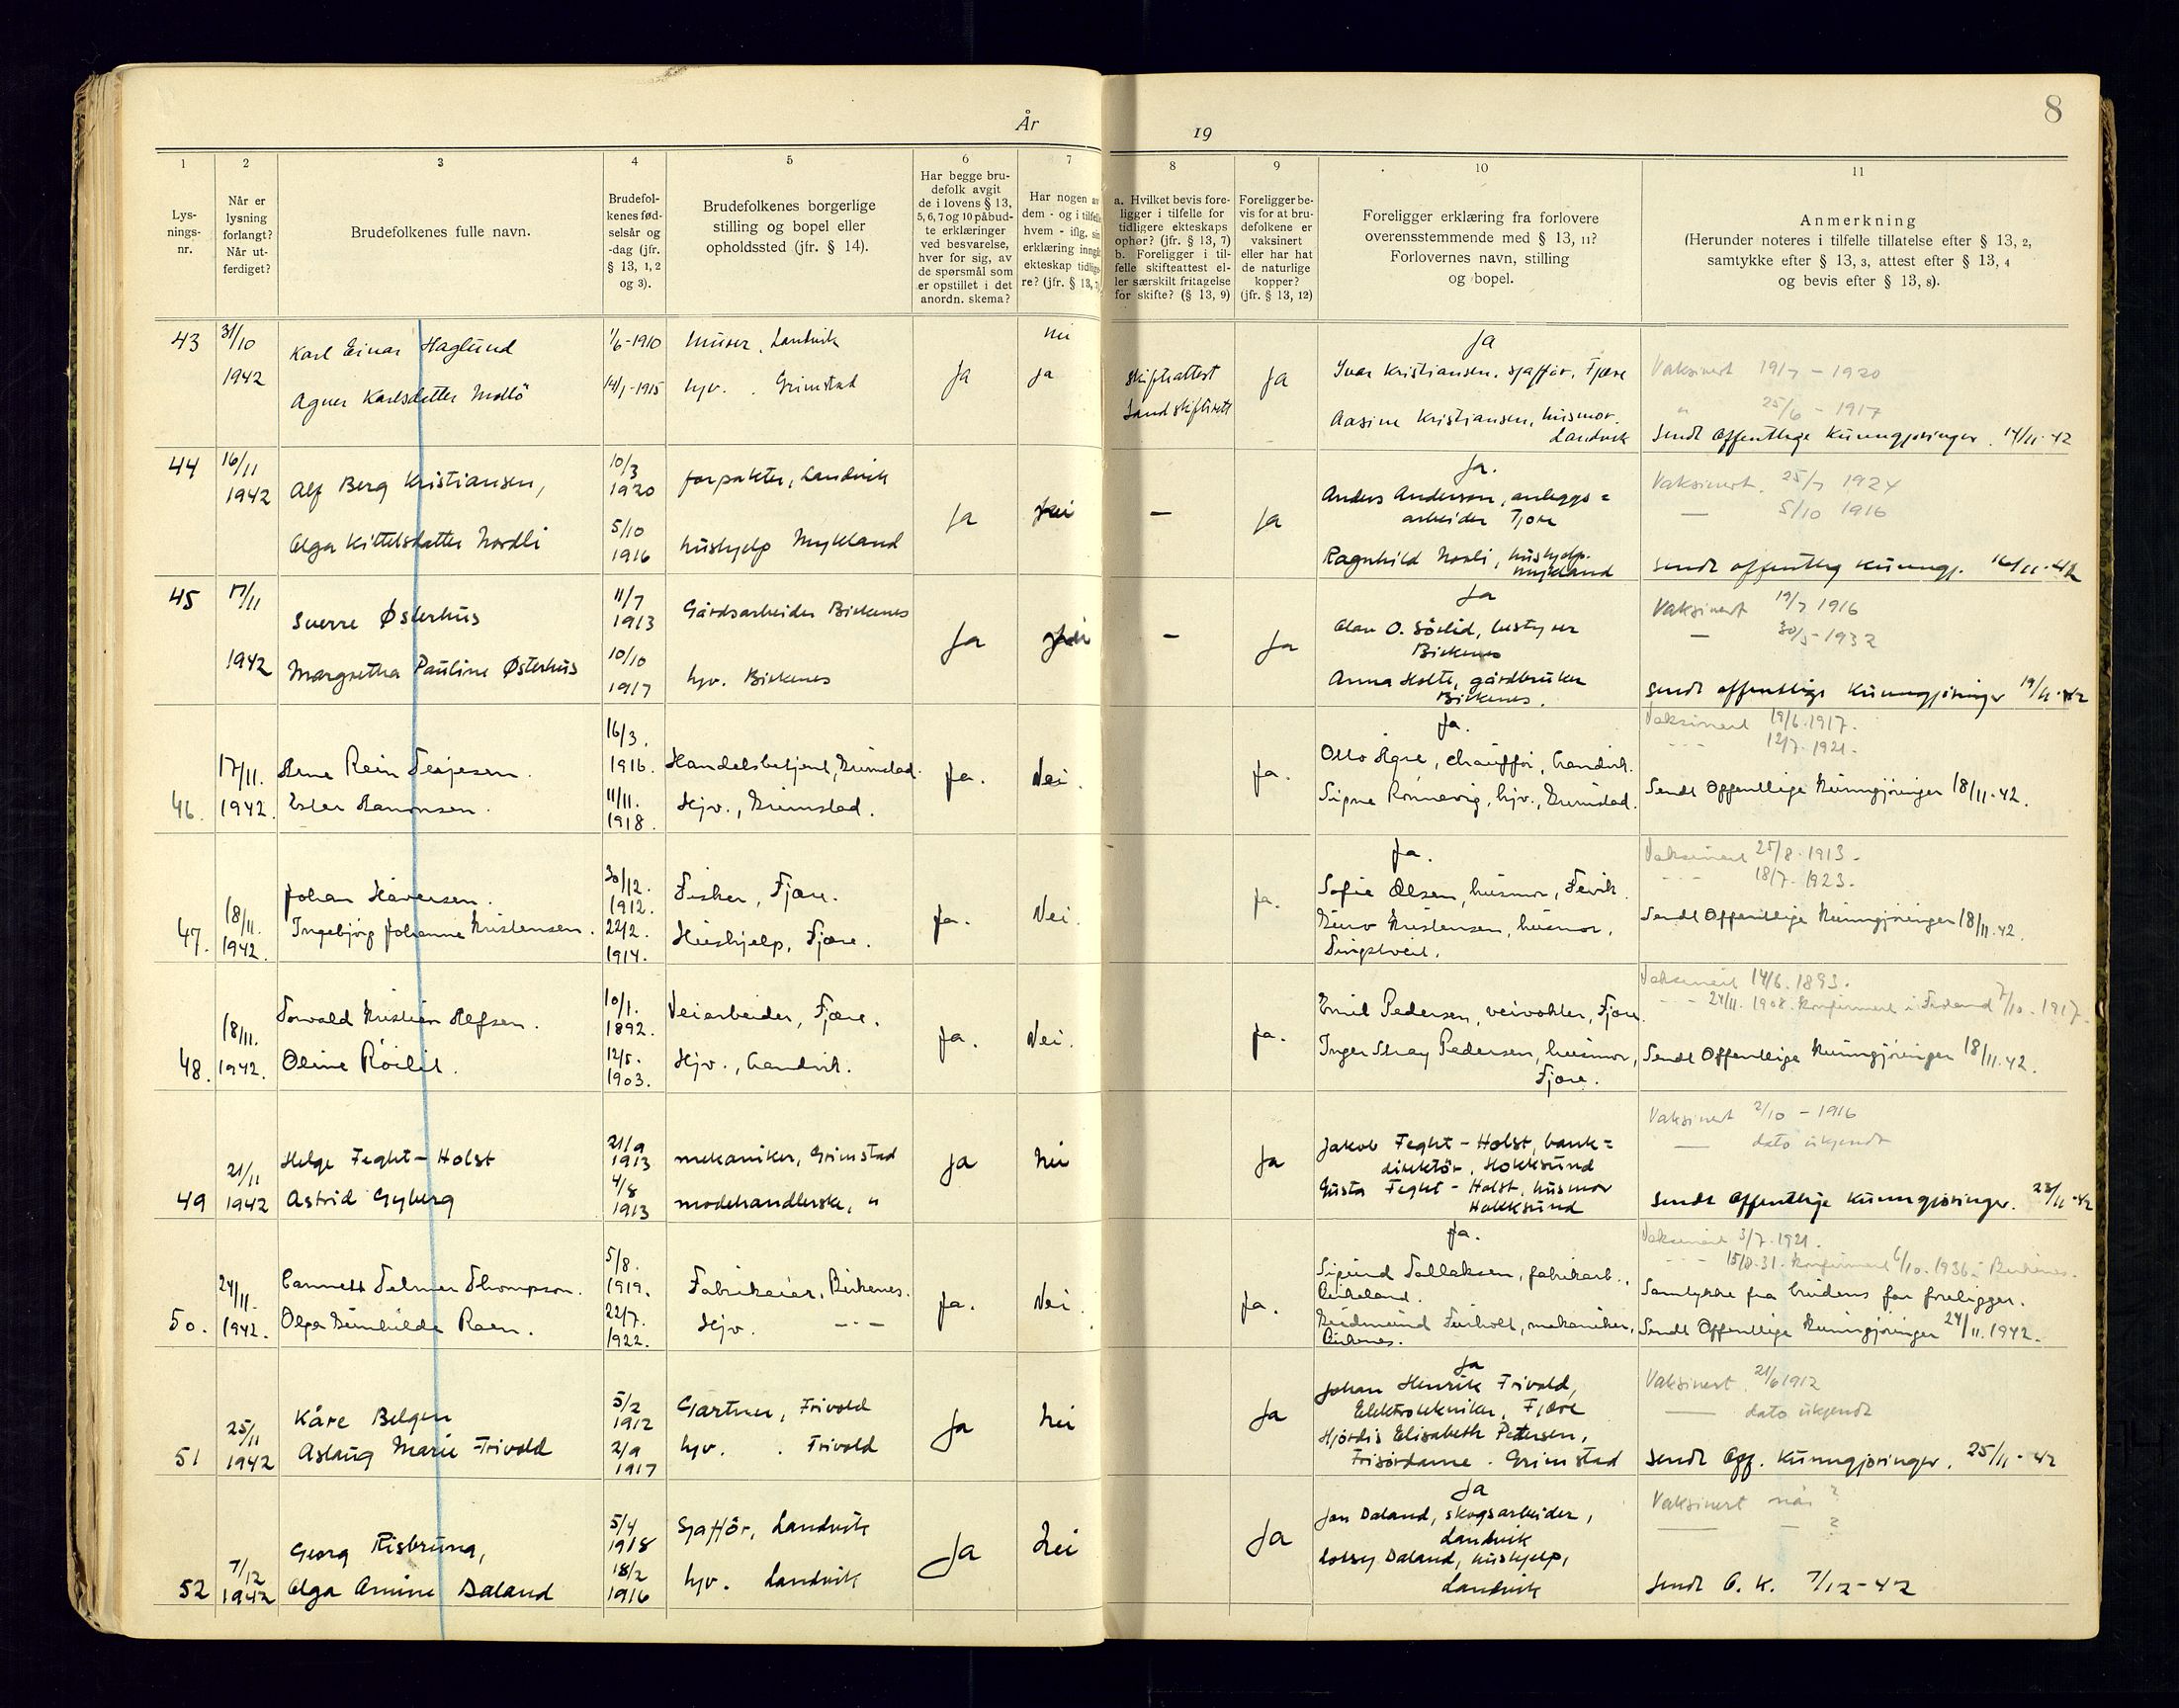 År
19
8
1
2
3
4
5
6
7
8
9
10
11
Lys-
nings-
nr.
Når er
lysning
forlangt?
Når ut-
ferdiget?
Brudefolkenes fulle navn.
Brudefol-
kenes fød-
selsår og
-dag (jfr.
§ 13, 1, 2
og 3).
Brudefolkenes borgerlige
stilling og bopel eller
opholdssted (jfr. § 14).
Har begge bru-
defolk avgit
de i lovens § 13,
5, 6, 7 og 10 påbud-
te erklæringer
ved besvarelse,
hver for sig, av
de spørsmål som
er opstillet i det
anordn. skema?
Har nogen av
dem - og i tilfelle
hvem - iflg. sin
erklæring inngått
ekteskap tidlige-
re? (jfr. § 13, 7)
a. Hvilket bevis fore-
ligger i tilfelle for
tidligere ekteskaps
ophør? (jfr. § 13, 7)
b. Foreligger i til-
felle skifteattest el-
ler særskilt fritagelse
for skifte? (§ 13, 9)
Foreligger be-
vis for at bru-
defolkene er
vaksinert
eller har hat
de naturlige
kopper?
(jfr. § 13, 12)
Foreligger erklæring fra forlovere
overensstemmende med § 13, 11?
Forlovernes navn, stilling
og bopel.
Anmerkning
(Herunder noteres i tilfelle tillatelse efter § 13, 2,
samtykke efter § 13, 3, attest efter § 13, 4
og bevis efter § 13, 8).
43
31/10
1942
Karl Einar Haglund
Agnes Karlsdatter Moltö
1/6-1910
14/1-1915
Murer, Landvik
hjv. Grimstad
Ja
nei
ja
Skifteattest
Ja
Ja
Ivar Kristiansen, sjafför, Fjære
Aasine Kristiansen, husmor.
Landvik
Vaksinert 19/7 - 1920
" 25/6 - 1917
Sendt Offentlige Kunngjøringer 14/11-42
44
16/11
1942
Alf Berg Kristiansen,
Olga Kittelsdatter Nordli
10/3
1920
5/10
1916
forpakter, Landvik
hushjelp Mykland
Ja
nei
—
Ja
Ja.
Anders Anderson, anleggs=
arbeider Fjære
Ragnhild Nordli, hushjelp.
Mykland
Vaksinert. 25/7 1924
— 5/10 1916
Sendt offentlig kunngj. 16/11-42
45
17/11
1942
Sverre Østerhus
Margretha Pauline Østerhus
11/7
1913
10/10
1917
Gårdsarbeider Birkenes
hjv. Birkenes
Ja
nei
—
Ja
Ja
Olav O. Sörlid, bestyrer
Birkenes
Anna Holte, gårdbruker
Birkenes.
Vaksinert 19/7 1916
— 30/5-1932
Sendt offentlige Kunngjøringer 19/11-42
46.
17/11.
1942.
Arne Rein Terjesen.
Ester Aanonsen.
16/3.
1916.
11/11.
1918.
Handelsbetjent, Grimstad.
Hjv., Grimstad.
Ja.
Nei.
Ja.
Ja.
Otto Agre, chauffør, Landvik.
Signe Rønnevig, hjv., Grimstad.
Vaksinert 19/6.1917.
- - - 12/7.1921.
Sendt Offentlige Kunngjøringer 18/11-42.
47.
18/11.
1942.
Johan Håversen.
Ingebjørg Johanne Kristensen.
30/12.
1912.
22/2.
1914.
Fisker, Fjære.
Hushjelp, Fjære.
Ja.
Nei.
Ja.
Ja.
Sofie Olsen, husmor, Fevik.
Guro Kristensen, husmor,
Tingstveit.
Vaksinert 25/8.1913.
- - - 18/7.1923.
Sendt Offentlige Kunngjøringer 18/11.42.
48.
18/11.
1942.
Torvald Kristian Alfsen.
Oline Röilid.
10/1.
1892.
12/5.
1903.
Veiarbeider, Fjære.
Hjv., Landvik.
Ja.
Nei.
Ja.
Emil Pedersen, veivokter, Fjære.
Inger Stray Pedersen, husmor,
Fjære.
Vaksinert 14/6.1893.
- - 24/11.1908. Konfirmert i Froland 7/10.1917.
Sendt Offentlige Kunngjøringer 18/11.42.
49
21/11
1942
Helge Feght-Holst
Astrid Gyberg
21/9
1913
4/8
1913
mekaniker, Grimstad
modehandlerske, "
Ja
Nei
Ja
Jakob Feght-Holst, bank=
direktör, Hokksund
Gusta Feght-Holst, husmor
Hokksund
Vaksinert 2/10 - 1916
— dato ukjendt
Sendt Offentlige kunngjøringer. 23/11-42
50.
24/11.
1942.
Cannett Telmer Thompson.
Olga Gunhilde Raen.
5/8.
1919.
22/7.
1922.
Fabrikeier, Birkenes.
Hjv. - - -
Ja.
Nei.
Ja.
Ja.
Sigurd Tallaksen, fabrikarb.,
Birkeland.
Gudmund Furholt, mekaniker,
Birkenes.
Vaksinert 3/7.1921.
- - 15/8.31. Konfirmert 6/10.1936 i Birkenes.
Samtykke fra brudens far foreligger.
Sendt Offentlige Kunngjøringer 24/11.1942.
51
25/11
1942
Kåre Belgen
Aslaug Marie Frivold
5/2
1912
2/9
1917
Gartner, Frivold
hjv. Frivold
Ja
Nei
Ja
Ja
Johan Henrik Frivold,
Elektrotekniker, Fjære
Hjördis Elisabeth Petersen,
Frisördame. Grimstad
Vaksinert. 21/6 1912
— dato ukjendt
Sendt Off. Kunngjøringer. 25/11-42
52
7/12
1942
Georg Risbruna,
Olga Amine Daland
5/4
1918
18/2
1916
Sjafför, Landvik
hjv. Landvik
Ja
Nei
Ja
Ja
Jon Daland, skogsarbeider,
Landvik
Lolly Daland, hushjelp,
Landvik
Vaksinert når ?
— — ?
Sendt O. K. 7/12-42